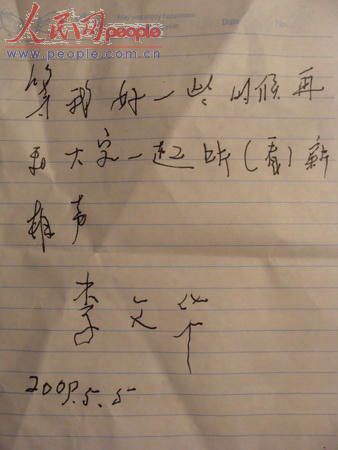 人民网 people
www.people.com.cn
Date
等我好一些时候再
和大家一起听(看)新
相声
李文华
2009.5.5